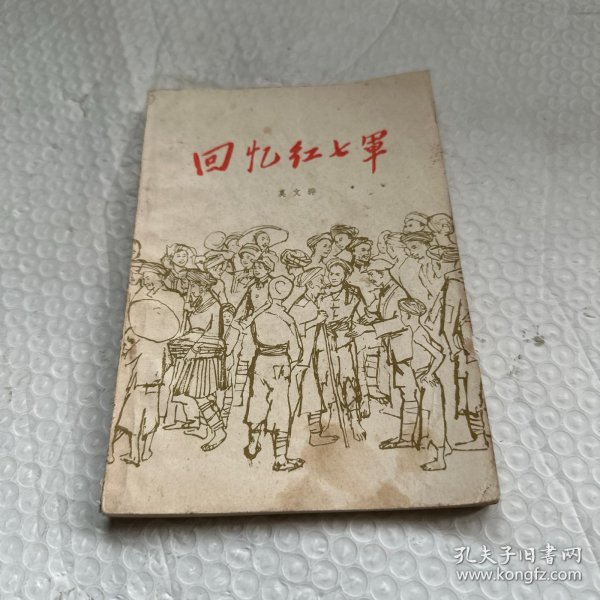 回忆红七軍
莫文骅
孔夫子旧书网
www.kongfz.com